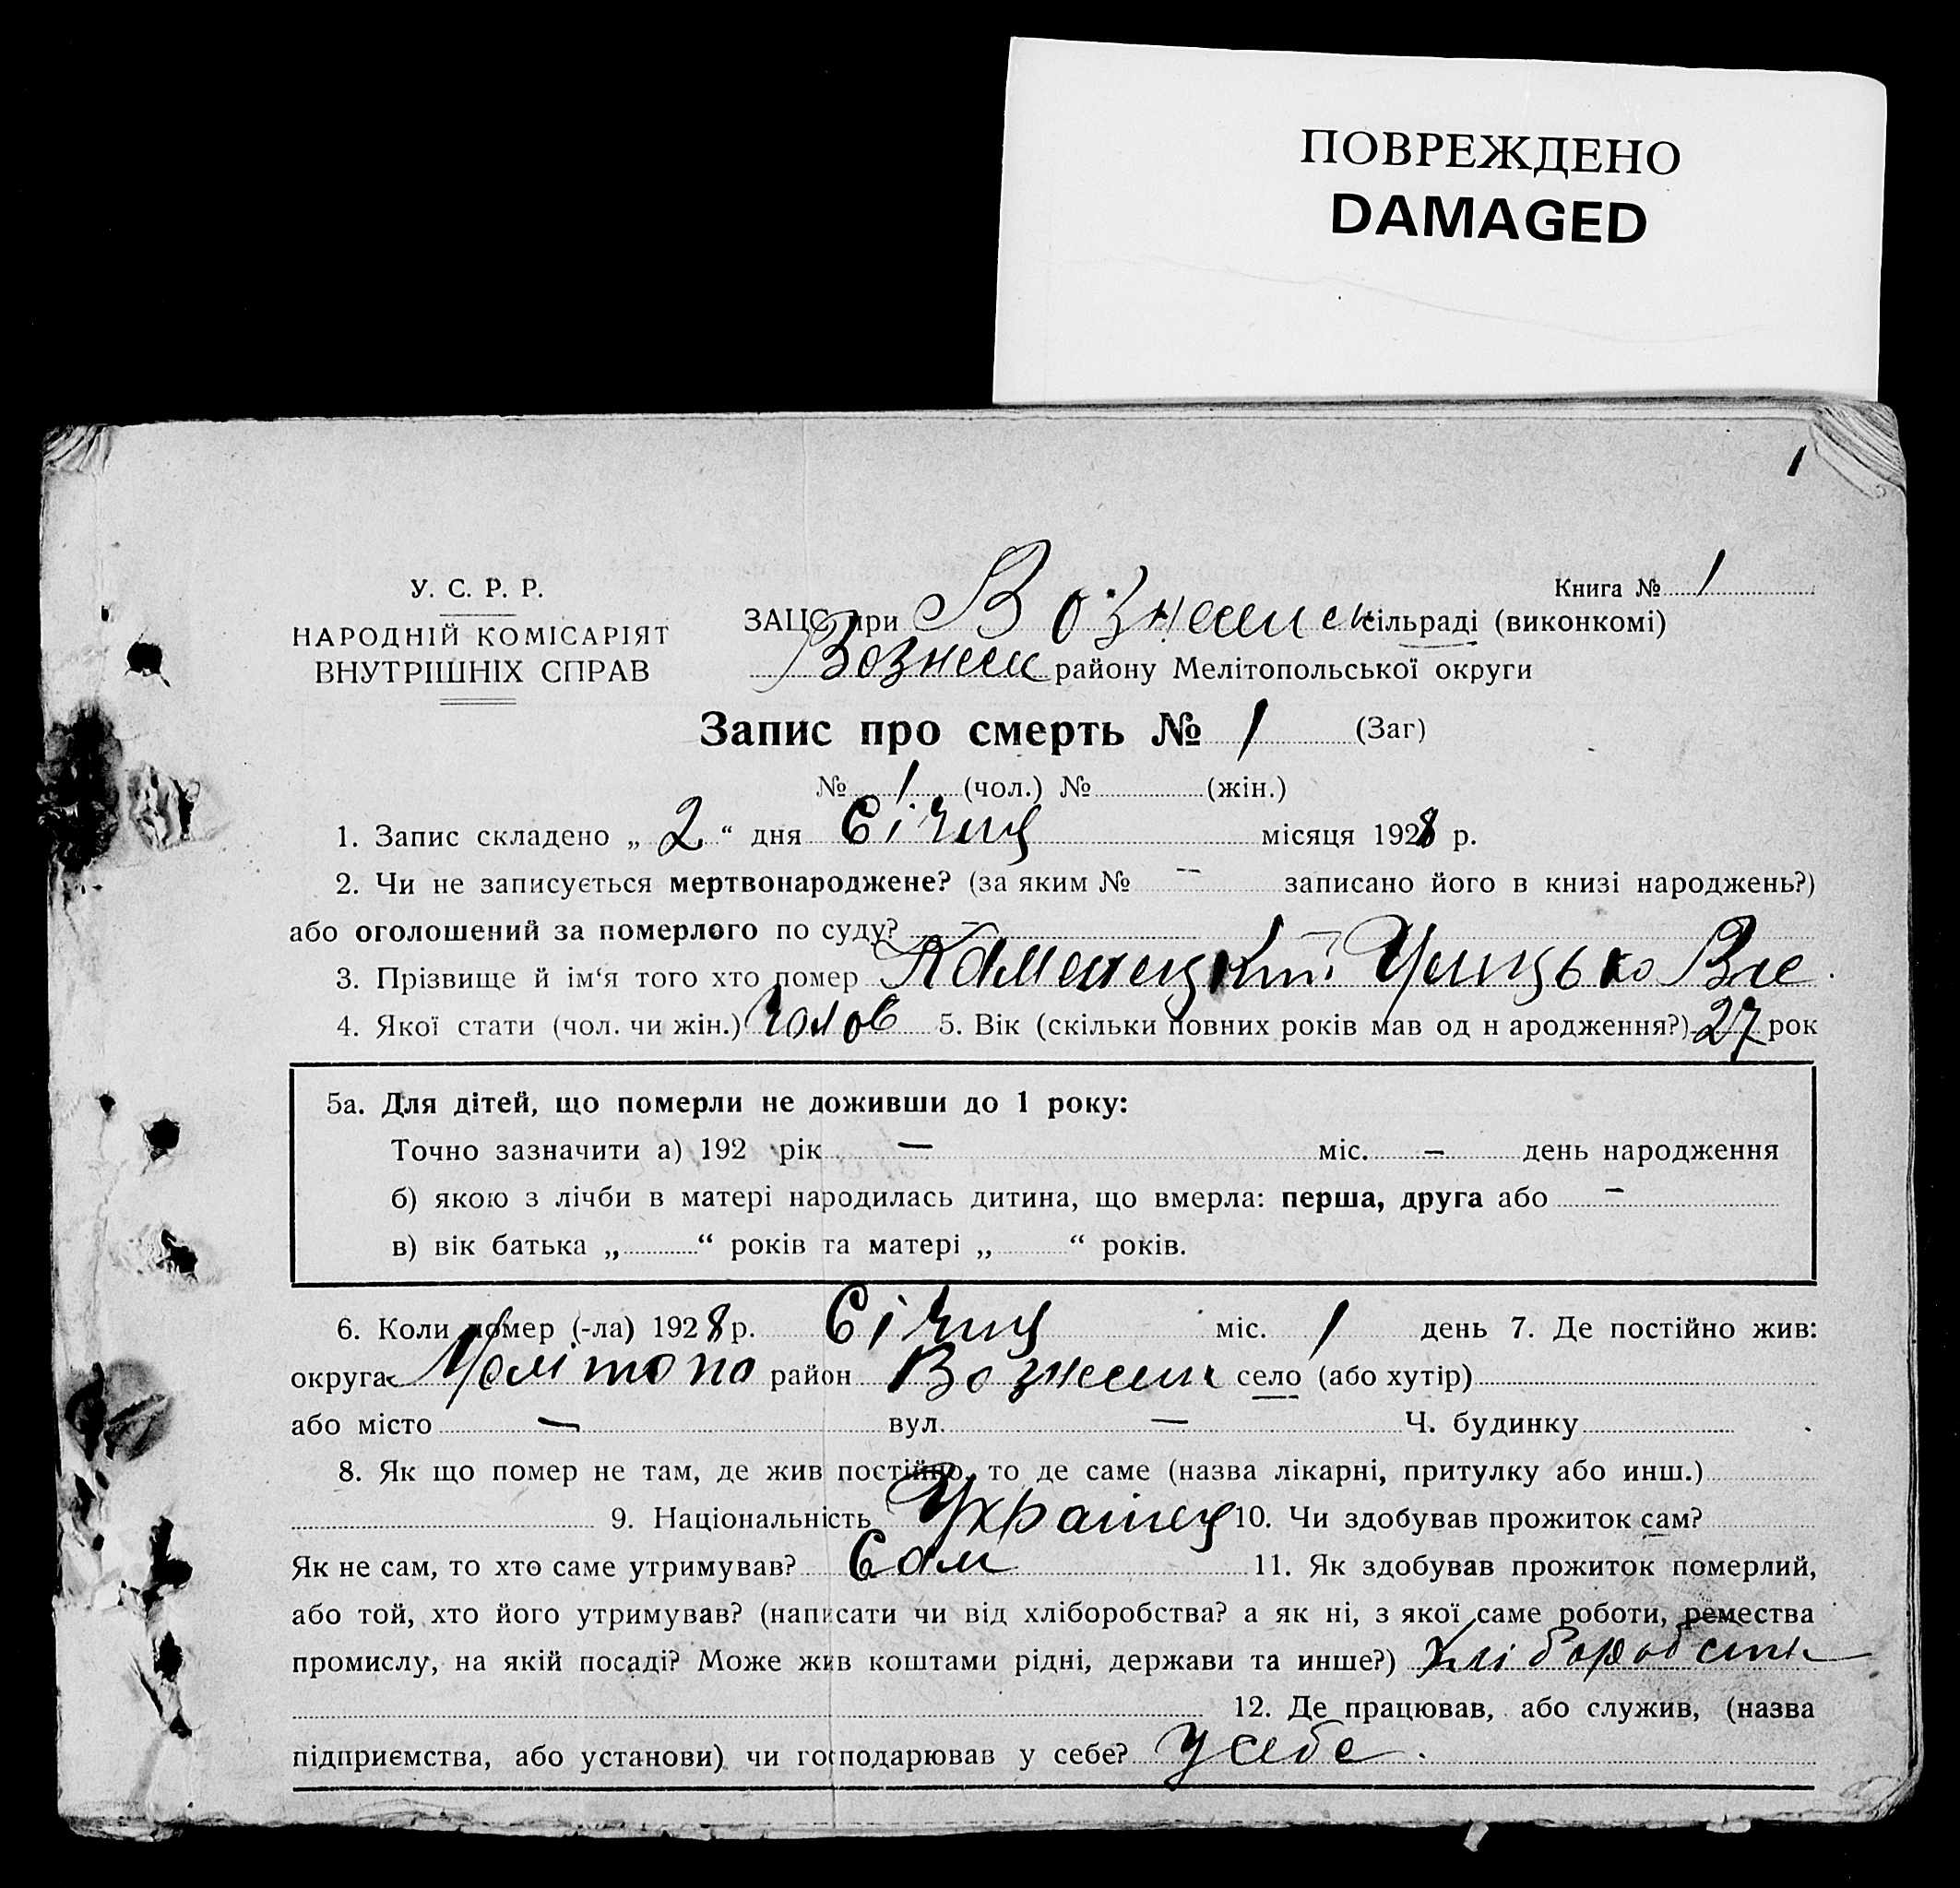 ПОВРЕЖДЕНО
DAMAGED
1
У. С. Р. Р.
НАРОДНІЙ КОМІСАРІЯТ
ВНУТРІШНІХ СПРАВ
Книга № 1
ЗАЦС при Вознесенсьсільраді (виконкомі)
Вознесе району Мелітопольської округи
Запис про смерть № 1 (Заг)
№ 1 (чол.) № (жін.)
1. Запис складено „ 2 “ дня Січня місяця 1928 р.
2. Чи не записується мертвонароджене? (за яким № — записано його в книзі народжень?)
або оголошений за померлого по суду? —
3. Прізвище й ім‘я того хто помер Каменецкий
4. Якої стати (чол. чи жін.) Чолов 5. Вік (скільки повних років мав од н ародження?) 27 рок
5а. Для дітей, що померли не доживши до 1 року:
Точно зазначити а) 192 рік — міс. — день народження
б) якою з лічби в матері народилась дитина, що вмерла: перша, друга або —
в) вік батька „ “ років та матері „ “ років.
6. Коли помер (-ла) 1928 р. Січня міс. 1 день 7. Де постійно жив:
округа Мелітопо район Вознесен село (або хутір)
або місто — вул. — Ч. будинку
8. Як що помер не там, де жив постійно, то де саме (назва лікарні, притулку або инш.)
9. Національність Українец 10. Чи здобував прожиток сам?
Як не сам, то хто саме утримував? Сам 11. Як здобував прожиток померлий,
або той, хто його утримував? (написати чи від хліборобства? а як ні, з якої саме роботи, ремества
промислу, на якій посаді? Може жив коштами рідні, держави та инше?) Хліборобств
12. Де працював, або служив, (назва
підприємства, або установи) чи господарював у себе? У себе.